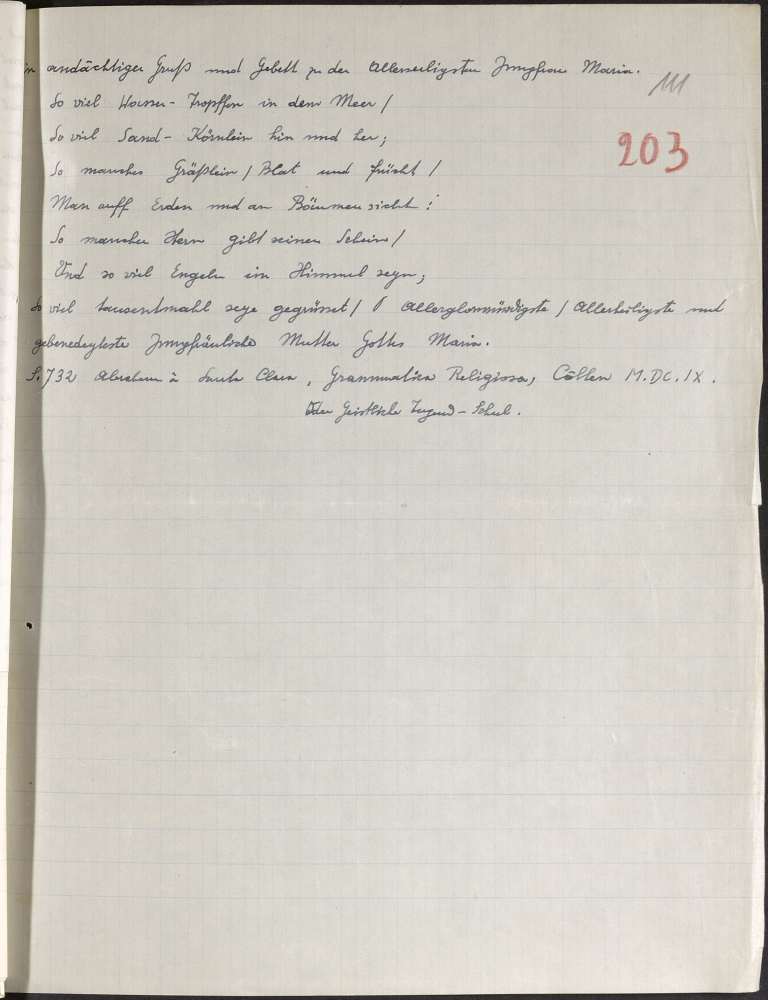 in andächtiger Gruß und Gebett zu der Allerheiligsten Jungfrau Maria.
111
So viel Wasser-Tropffen in dem Meer /
203
So viel Sand-Körnlein hin und her;
So manches Gräßlein / Blat und frücht /
Man auff Erden und an Bäumen sicht:
So mancher Stern gibt seinen Schein /
Und so viel Engeln im Himmel seyn;
So viel tausentmahl seye gegrüsset / O Allerglorwürdigste / Allerheiligste und
gebenedeyteste Jungfräuliche Mutter Gottes Maria.
S. 732 Abraham à Santa Clara, Grammatica Religiosa, Cöllen M.DC.IX.
Oder Geistliche Tugend-Schul.